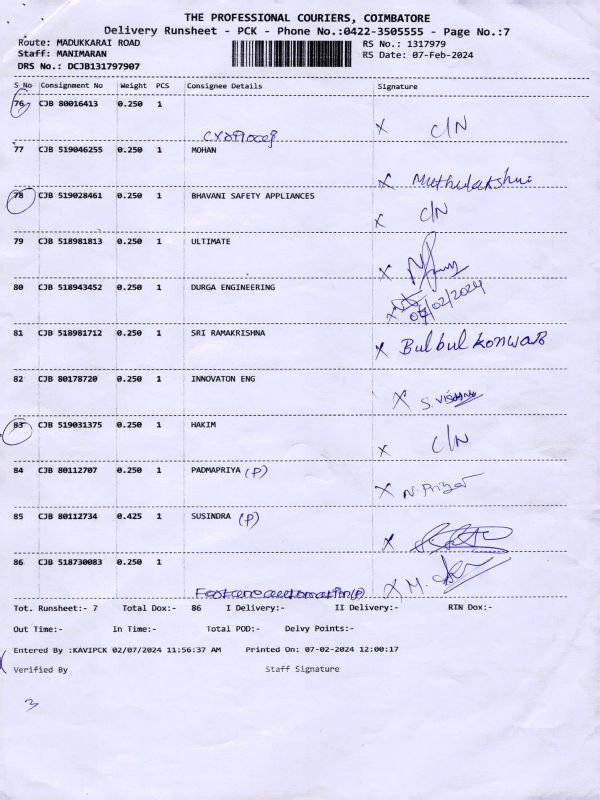 THE PROFESSIONAL COURIERS, COIMBATORE
Delivery Runsheet - PCK - Phone No.:0422-3505555 - Page No.:7
Route: MADUKKARAI ROAD RS No.: 1317979
Staff: MANIMARAN RS Date: 07-Feb-2024
DRS No.: DCJB131797907
S_No Consignment No Weight PCS Consignee Details Signature
76 CJB 80016413 0.250 1 C/N
77 CJB 519046255 0.250 1 MOHAN
Muthulakshmi
78 CJB 519028461 0.250 1 BHAVANI SAFETY APPLIANCES
C/N
79 CJB 518981813 0.250 1 ULTIMATE
80 CJB 518943452 0.250 1 DURGA ENGINEERING
07/02/2024
81 CJB 518981712 0.250 1 SRI RAMAKRISHNA
Bulbul Konwar
82 CJB 80178720 0.250 1 INNOVATON ENG
83 CJB 519031375 0.250 1 HAKIM
C/N
84 CJB 80112707 0.250 1 PADMAPRIYA (P)
85 CJB 80112734 0.425 1 SUSINDRA (P)
86 CJB 518730083 0.250 1
Tot. Runsheet:- 7 Total Dox:- 86 I Delivery:- II Delivery:- RIN Dox:-
Out Time:- In Time:- Total POD:- Delvy Points:-
Entered By :KAVIPCK 02/07/2024 11:56:37 AM Printed On: 07-02-2024 12:00:17
Verified By Staff Signature
3